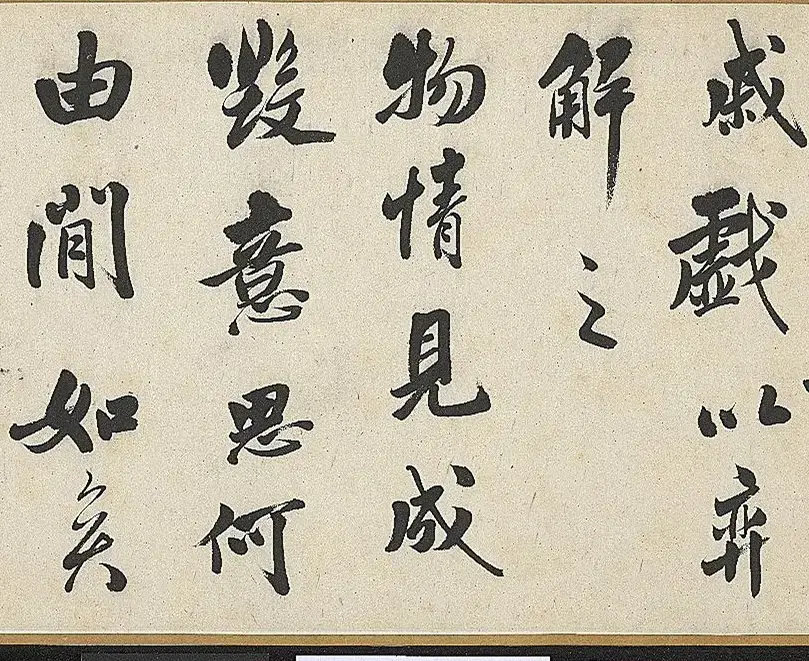 戚戲以弈
解之
物情見成
毀意思何
由閒如